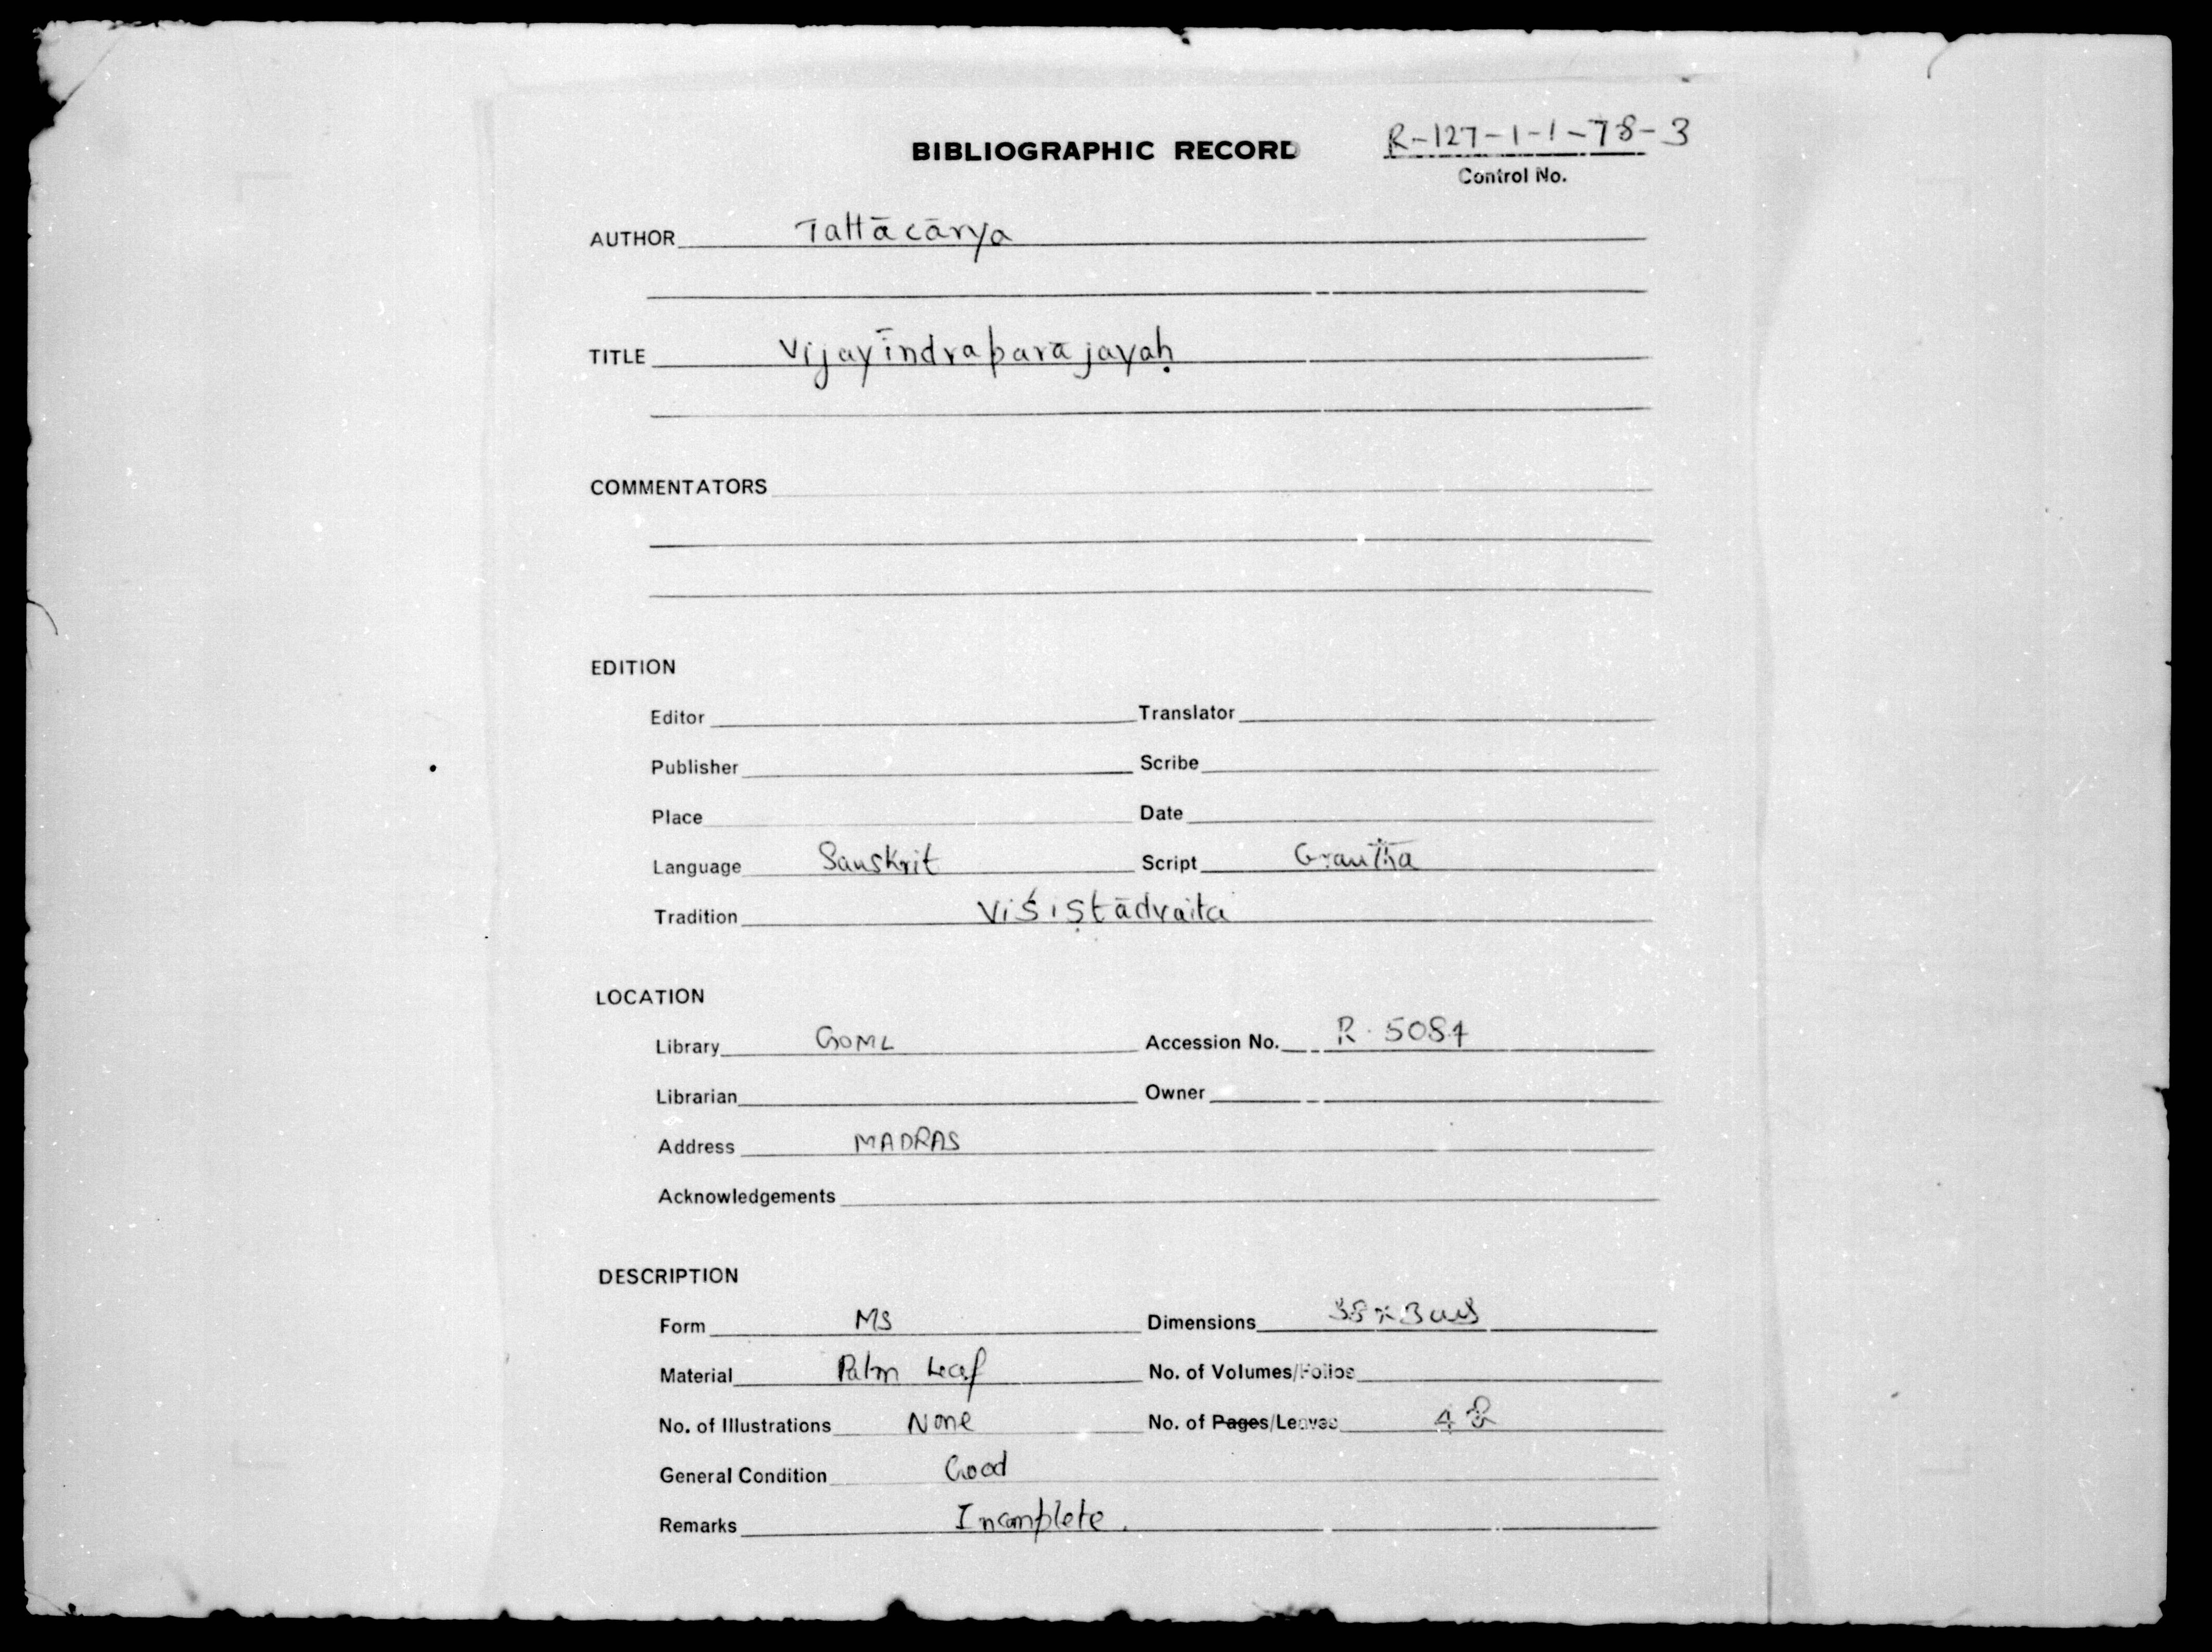 BIBLIOGRAPHIC RECORD R-127-1-1-78-3
Control No.
AUTHOR Tattācārya
TITLE Vijayīndraparājayaḥ
COMMENTATORS
EDITION
Editor Translator
Publisher Scribe
Place Date
Language Sanskrit Script Grantha
Tradition Viśiṣṭādvaita
LOCATION
Library GOML Accession No. R. 5084
Librarian Owner
Address MADRAS
Acknowledgements
DESCRIPTION
Form MS Dimensions 38 x 3 cms
Material Palm Leaf No. of Volumes/Folios
No. of Illustrations None No. of Pages/Leaves
General Condition Good
Remarks Incomplete.